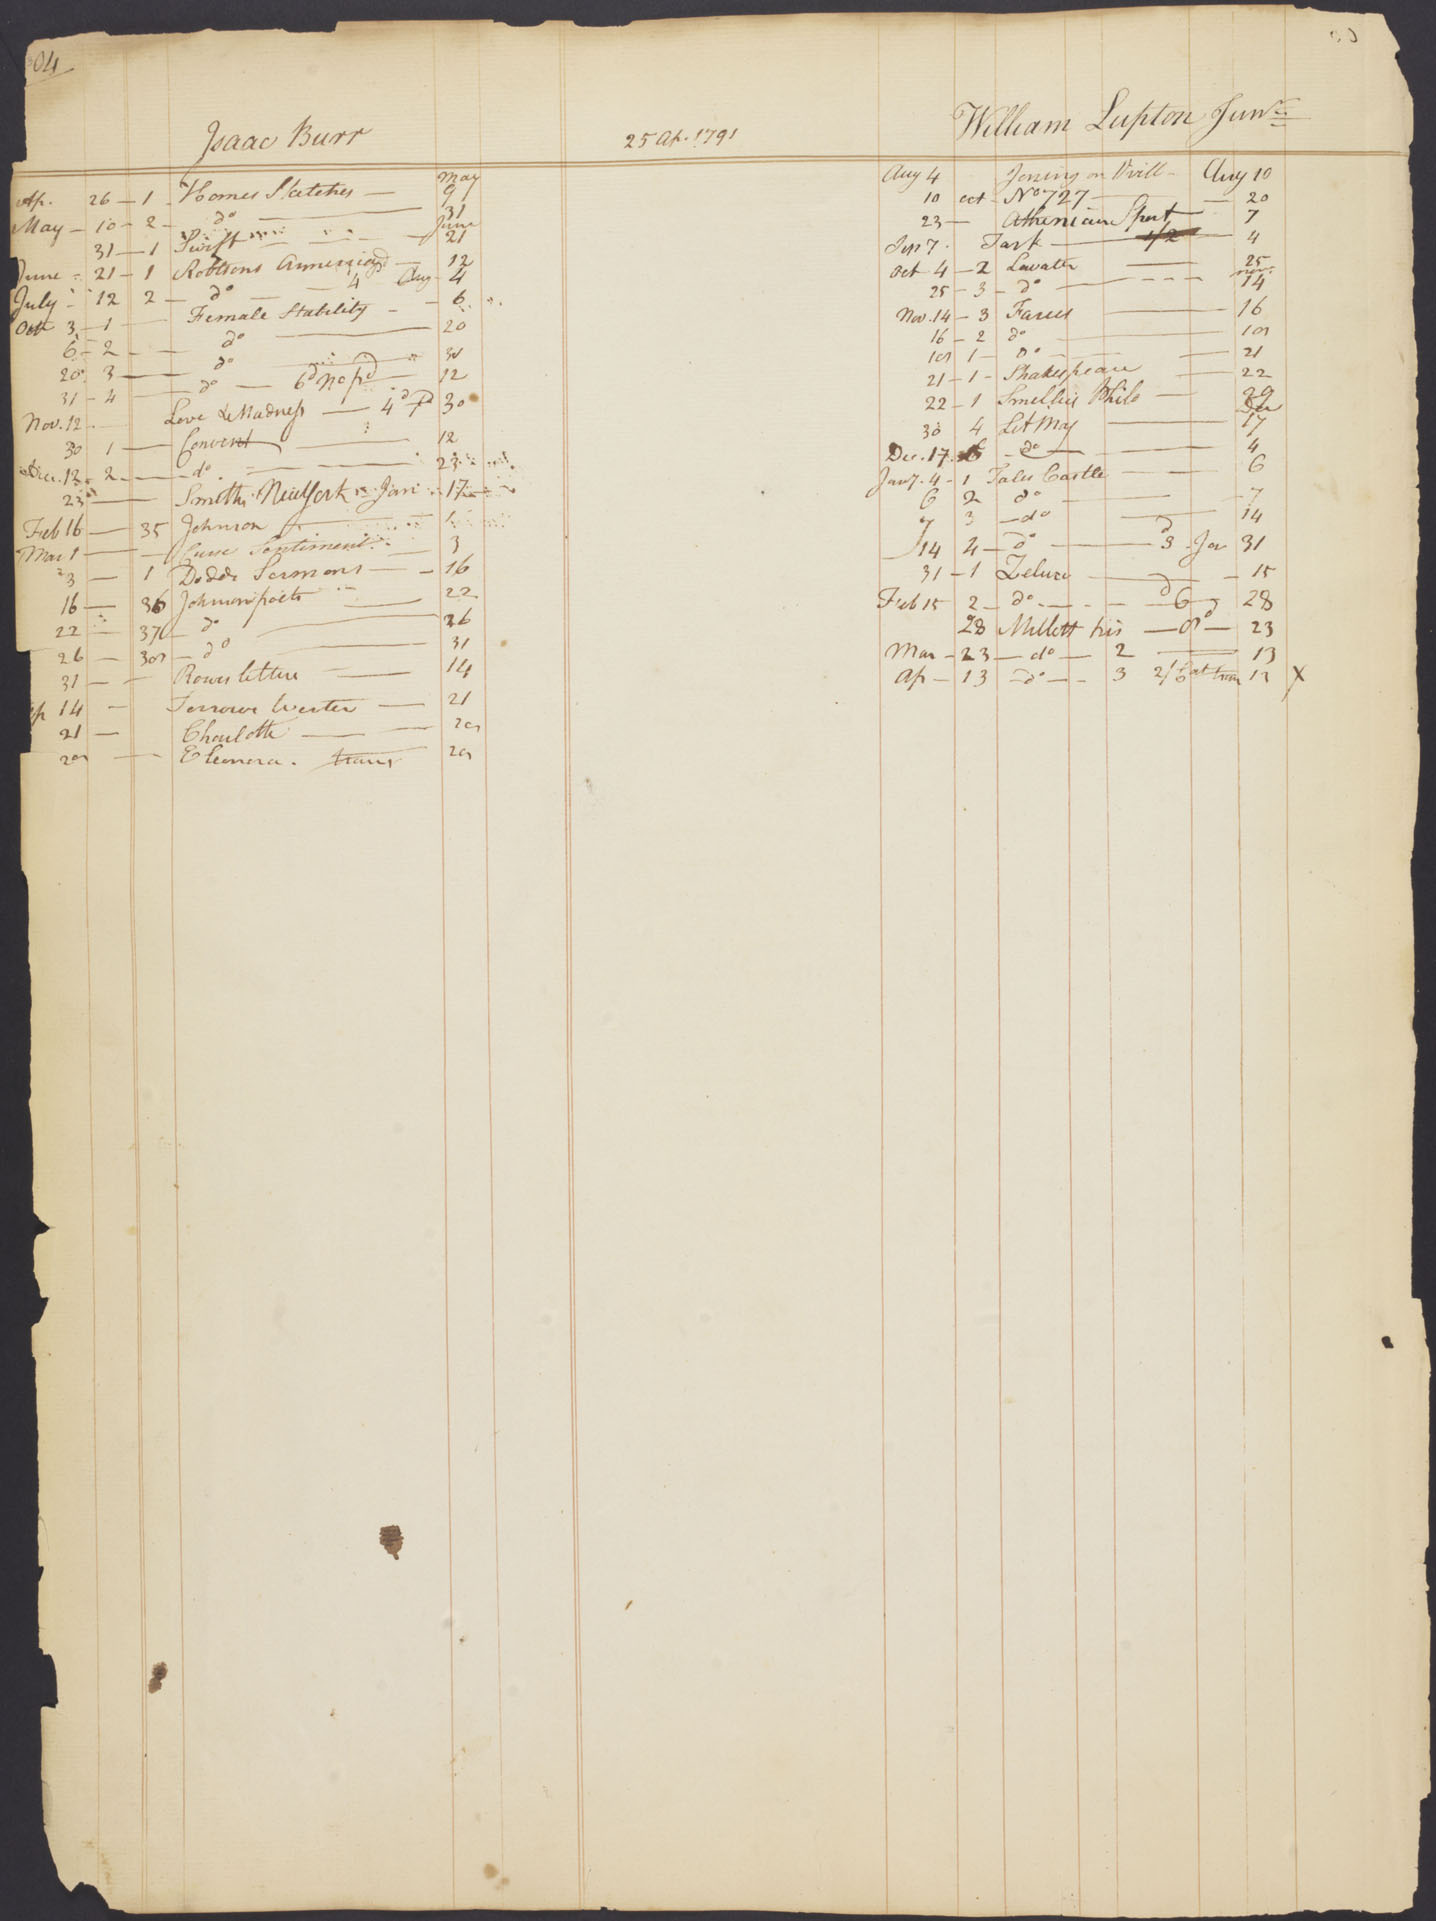 04
Isaac Burr
25 Ap. 1791
Ap. 26 — 1 - Homes Sketches — May 9
May — 10 — 2 — do — 31
31 — 1 Swift — June 21
June — 21 — 1 Robtsons — 12
July — 12 2 — do — 4 Aug — 4
Oct 3 — 1 — Female Stability — 6
6 — 2 — do — 20
20 3 — do — 31
31 — 4 — do — 6d No pd — 12
Nov. 12 — Love & Madness — 4d Pd 30
30 1 — Convent — 12
Dec. 12 — 2 — do — 23
23 — Smiths NewYork — Jan 17
Feb 16 — 35 Johnson —
Mar 1 — Sentiment — 3
3 — 1 Dodds Sermons — 16
16 — 36 Johnson poets — 22
22 — 37 — do — 26
26 — 38 — do — 31
31 — Rowes letters — 14
Ap 14 — Sorrows Werter — 21
21 — Charlotte — 28
28 — Eleonora. trans 28
William Lupton Junr
Aug 4 Joning on Phill — Aug 10
10 oct — No 727 — 20
23 — Athenian Sport — 7
Sep 7. Task — 1/2 — 4
Oct 4 — 2 Lavater — 25
25 — 3 — do — Nov. 14
Nov. 14 — 3 Farces — 16
16 — 2 do — 18
18 1 — Do — 21
21 — 1 — Shakespeare — 22
22 — 1 Smellies Philo — 29
30 4 Lit Mag — Dec 17
Dec. 17 — do — 4
Jany. 4 — 1 Tales Castle — 6
6 2 do — 7
7 3 — do — 14
14 4 — do — 3d Jan 31
31 — 1 Zeluco — 15
Feb 15 2 — do — 6d 28
28 Millott his — 8d — 23
Mar — 23 — do — 2 — 13
Ap — 13 — do — 3 2/6 13 X